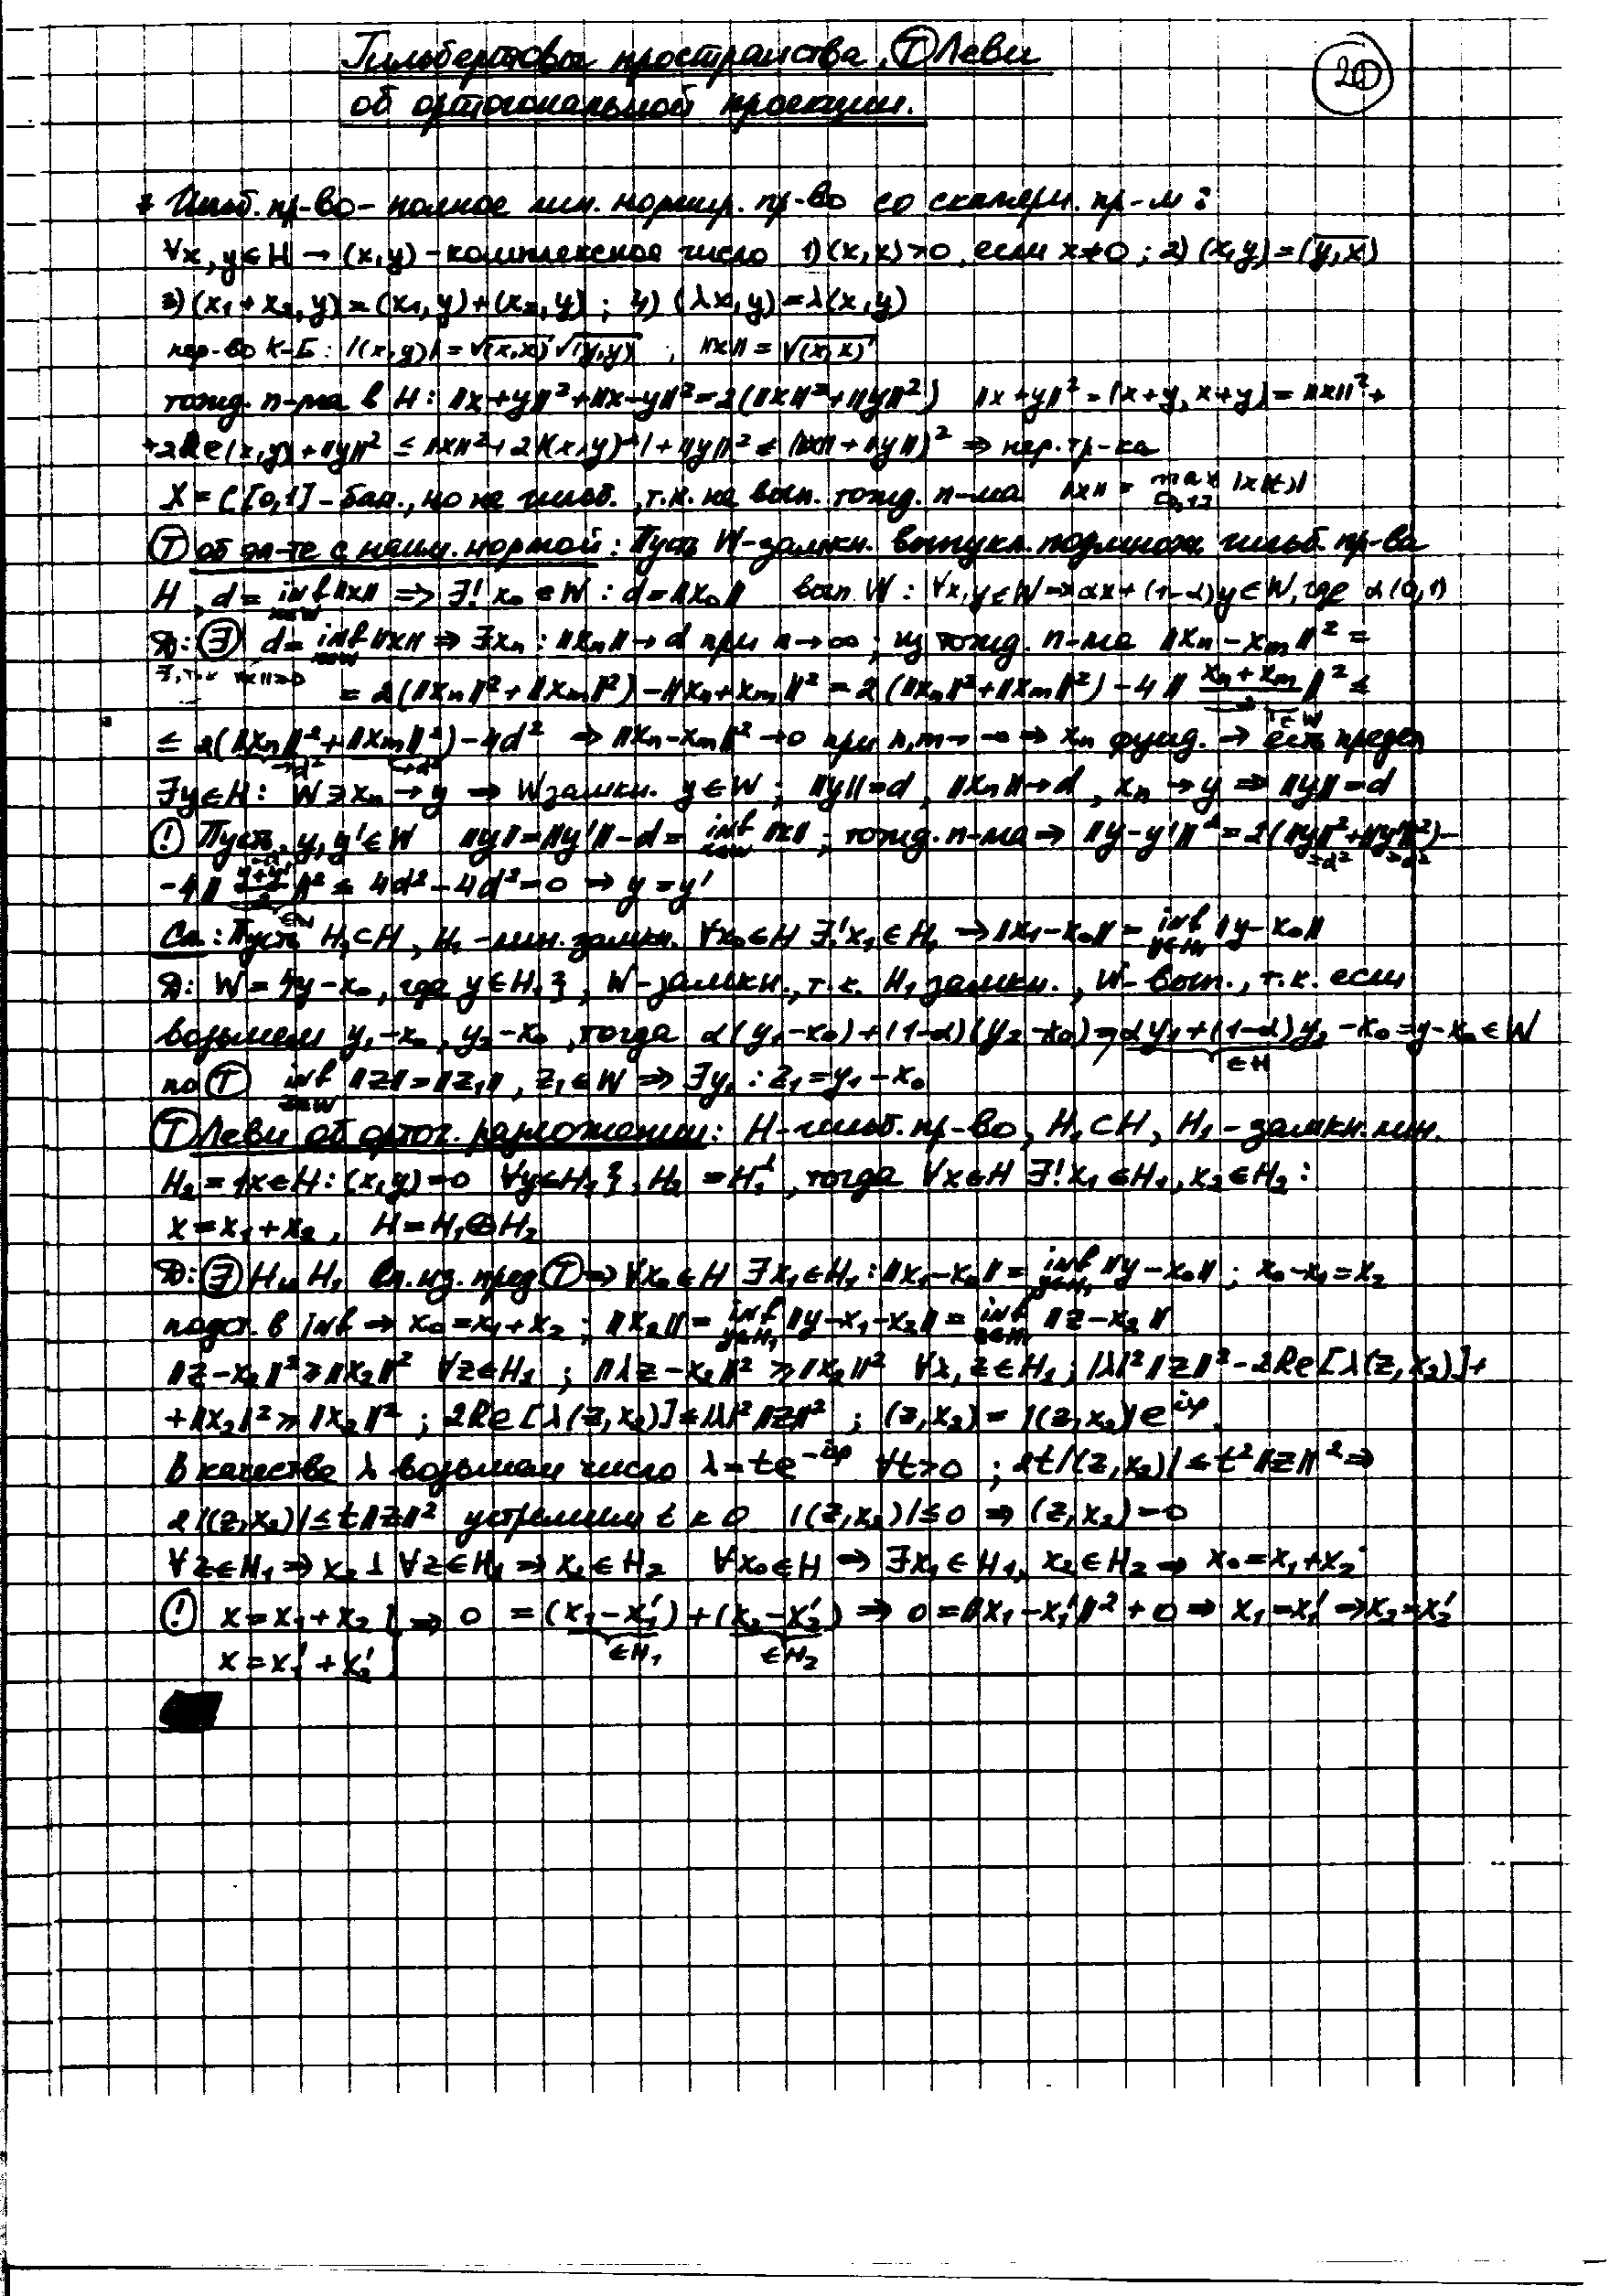 Гильбертовы пространства. (Т) Леви
об ортогональной проекции.
20
* Гильб. пр-во – полное лин. нормир. пр-во со скалярн. пр-м:
∀x, y ∈ H → (x,y) – комплексное число 1) (x,x)>0, если x≠0; 2) (x,y)=\overline{(y,x)}
3) (x₁+x₂,y)=(x₁,y)+(x₂,y); 4) (λx,y)=λ(x,y)
нер-во К-Б: |(x,y)|=√(x,x) √(y,y), ‖x‖=√(x,x)
тожд. п-ма в H: ‖x+y‖²+‖x-y‖²=2(‖x‖²+‖y‖²) ‖x+y‖²=(x+y,x+y)=‖x‖²+
+2Re(x,y)+‖y‖² ≤ ‖x‖²+2|(x,y)|+‖y‖² ≤ (‖x‖+‖y‖)² ⇒ нер. тр-ка
X=C[0,1] – бан., но не гильб., т.к. не вып. тожд. п-ма ‖x‖ = max_{[0,1]} |x(t)|
(Т) об эл-те с наим. нормой: Пусть W-замкн. выпукл. подмнож. гильб. пр-ва
H, d = inf_{x∈W} ‖x‖ ⇒ ∃! x₀ ∈ W : d=‖x₀‖ вып W: ∀x,y ∈ W ⇒ αx+(1-α)y ∈ W, где α(0,1)
Д: (∃) d = inf_{x∈W} ‖x‖ ⇒ ∃xₙ: ‖xₙ‖→d при n→∞; из тожд. п-ма ‖xₙ-xₘ‖² =
∃, т.к ‖x‖≥0
= 2(‖xₙ‖²+‖xₘ‖²)-‖xₙ+xₘ‖² = 2(‖xₙ‖²+‖xₘ‖²)-4‖(xₙ+xₘ)/2‖² ≤
∈W
≤ 2(‖xₙ‖²+‖xₘ‖²)-4d² ⇒ ‖xₙ-xₘ‖²→0 при n,m→∞ ⇒ xₙ фунд. ⇒ есть предел
→d² →d²
∃y∈H: W∋xₙ→y ⇒ W замкн. y∈W; ‖y‖=d, ‖xₙ‖→d, xₙ→y ⇒ ‖y‖=d
(!) Пусть y,y'∈W ‖y‖=‖y'‖=d= inf_{x∈W} ‖x‖; тожд. п-ма ⇒ ‖y-y'‖²=2(‖y‖²+‖y'‖²)-
=d² =d²
-4‖(y+y')/2‖² ≤ 4d²-4d²=0 ⇒ y=y'
∈W
Сл.: Пусть H₁⊂H, H₁-лин. замкн. ∀x₀∈H ∃!x₁∈H₁ ⇒ ‖x₁-x₀‖= inf_{y∈H₁} ‖y-x₀‖
Д: W={y-x₀, где y∈H₁}, W-замкн., т.к. H₁ замкн., W-вып., т.к. если
возьмем y₁-x₀, y₂-x₀, тогда α(y₁-x₀)+(1-α)(y₂-x₀)=αy₁+(1-α)y₂-x₀=y-x₀∈W
∈H
по (Т) inf_{z∈W} ‖z‖=‖z₁‖, z₁∈W ⇒ ∃y₁: z₁=y₁-x₀
(Т) Леви об ортог. разложении: H-гильб. пр-во, H₁⊂H, H₁-замкн. лин.
H₂={x∈H: (x,y)=0 ∀y∈H₁}, H₂=H₁^⊥, тогда ∀x∈H ∃!x₁∈H₁, x₂∈H₂:
x=x₁+x₂, H=H₁⊕H₂
Д: (∃) H и H₁ сл. из. пред (Т) ⇒ ∀x₀∈H ∃x₁∈H₁: ‖x₁-x₀‖= inf_{y∈H₁} ‖y-x₀‖; x₀-x₁=x₂
подст. в inf ⇒ x₀=x₁+x₂; ‖x₂‖= inf_{y∈H₁} ‖y-x₁-x₂‖= inf_{z∈H₁} ‖z-x₂‖
‖z-x₂‖²≥‖x₂‖² ∀z∈H₁; ‖λz-x₂‖²≥‖x₂‖² ∀λ, z∈H₁; |λ|²‖z‖²-2Re[λ(z,x₂)]+
+‖x₂‖²≥‖x₂‖²; 2Re[λ(z,x₂)]≤|λ|²‖z‖²; (z,x₂)=|(z,x₂)|e^{iφ}.
В качестве λ возьмем число λ=te^{-iφ} ∀t>0; 2t|(z,x₂)|≤t²‖z‖² ⇒
2|(z,x₂)|≤t‖z‖² устремим t к 0 |(z,x₂)|≤0 ⇒ (z,x₂)=0
∀z∈H₁ ⇒ x₂⊥∀z∈H₁ ⇒ x₂∈H₂ ∀x₀∈H ⇒ ∃x₁∈H₁, x₂∈H₂ ⇒ x₀=x₁+x₂.
(!) x=x₁+x₂ } ⇒ 0 = (x₁-x₁')+(x₂-x₂') ⇒ 0=‖x₁-x₁'‖²+0 ⇒ x₁=x₁' ⇒ x₂=x₂'
x=x₁'+x₂' ∈H₁ ∈H₂